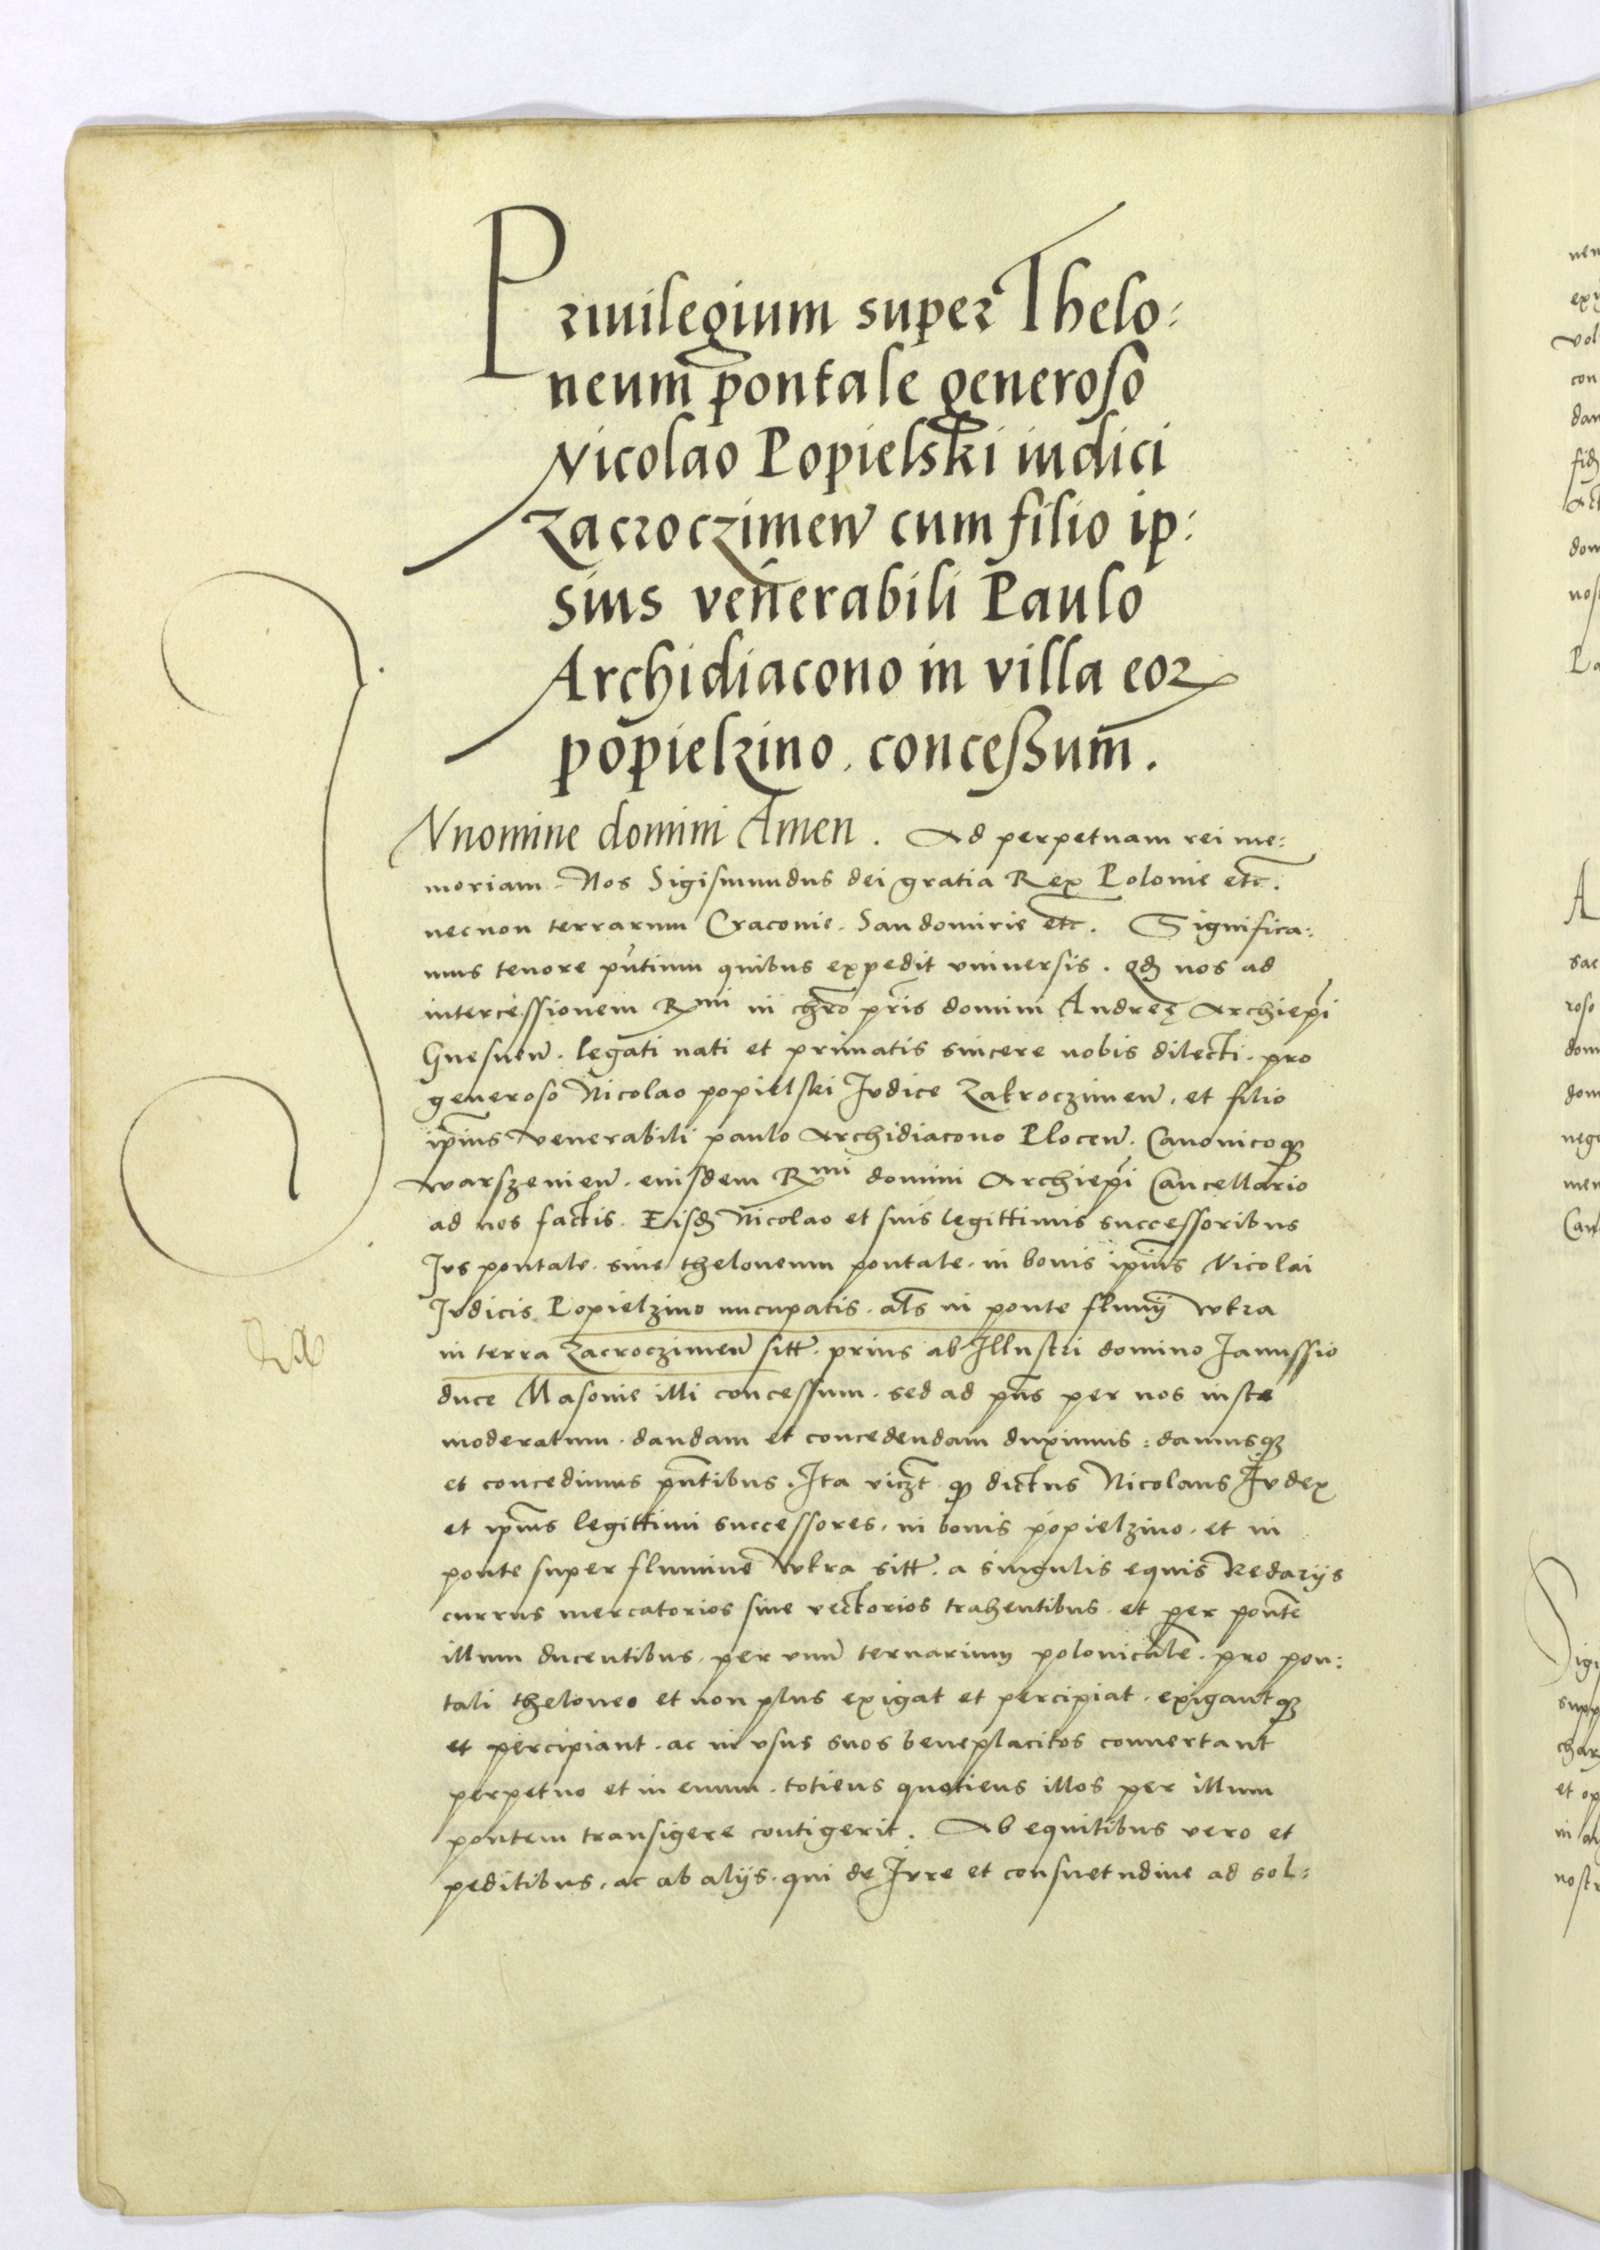 Priuilegium super Thelo:
neum pontale generoso
Nicolao Popielski iudici
Zacroczimen̄ cum filio ip:
sius venerabili Paulo
Archidiacono in villa eoꝝ
popielzino. concessum.
IN nomine domini Amen. Ad perpetuam rei me:
moriam. Nos Sigismundus dei gratia Rex Polonie etc̄.
necnon terrarum Cracouie. Sandomirie etc̄. Significa:
mus tenore pn̄tium quibus expedit vniuersis. qđ nos ad
intercessionem Rmi in chr̄o pr̄is domini Andreę Archiepī
Gnesnen̄. legati nati et primatis sincere nobis dilecti. pro
generoso Nicolao popielski Judice Zakroczimen̄. et filio
ip̄ius venerabili paulo Archidiacono Plocen̄. Canonicoqꝫ
warszeuien̄. eiusdem Rmi domini Archiepī Cancellario
ad nos factis. Eisđ Nicolao et suis legittimis successoribus
Jus pontale. siue theloneum pontale. in bonis ip̄ius Nicolai
Judicis Popielzino nucupatis. al̄s in ponte fluuij wkra
in terra Zacroczimen̄ sitt̄. prius ab Illustri domino Janussio
duce Masouie illi concessum. sed ad pn̄s per nos iuste
moderatum. dandam et concedendam duximus: damusqꝫ
et concedimus pn̄tibus. Ita viczt̄. qꝫ dictus Nicolaus Judex
et ip̄ius legittimi successores. in bonis popielzino. et in
ponte super flumine wkra sitt̄. a singulis equis Redarijs
currus mercatorios siue vectorios trahentibus. et per pontē
illum ducentibus. per vnū ternarium polonicalē. pro pon:
tali theloneo et non plus exigat et percipiat. exigantqꝫ
et percipiant. ac in vsus suos beneplacitos conuertant
perpetuo et in euum. totiens quotiens illos per illum
pontem transigere contigerit. Ab equitibus vero et
peditibus. ac ab alijs. qui de Jure et consuetudine ad sol: